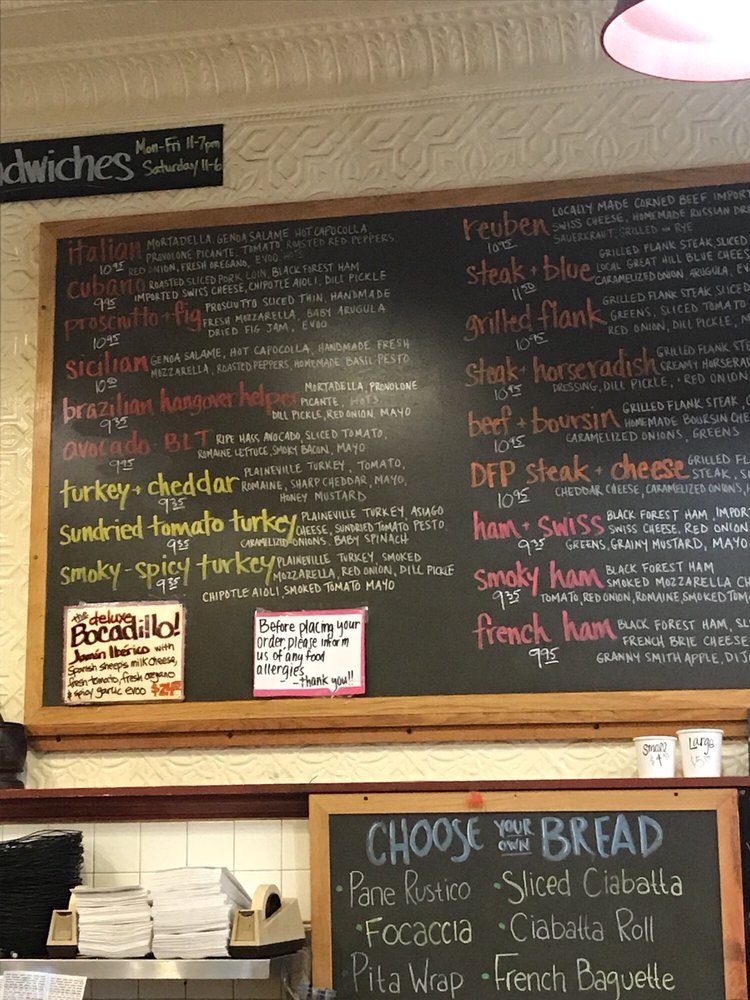 dwiches Mon-Fri 11-7pm
Saturday 11-6
italian MORTADELLA, GENOA SALAME, HOT CAPOCOLLA,
PROVOLONE PICANTE, TOMATO, ROASTED RED PEPPERS,
10.95 RED ONION, FRESH OREGANO, EVOO, HOTS
cubano ROASTED SLICED PORK LOIN, BLACK FOREST HAM
9.95 IMPORTED SWISS CHEESE, CHIPOTLE AIOLI, DILL PICKLE
prosciutto + fig PROSCIUTTO SLICED THIN, HANDMADE
FRESH MOZZARELLA, BABY ARUGULA
10.95 DRIED FIG JAM, EVOO
sicilian GENOA SALAME, HOT CAPOCOLLA, HANDMADE FRESH
MOZZARELLA, ROASTED PEPPERS, HOMEMADE BASIL PESTO
brazilian hangover helper MORTADELLA, PROVOLONE
PICANTE, HOTS
9.35 DILL PICKLE, RED ONION, MAYO
avocado BLT RIPE HASS AVOCADO, SLICED TOMATO,
9.95 ROMAINE LETTUCE, SMOKY BACON, MAYO
turkey + cheddar PLAINEVILLE TURKEY, TOMATO,
ROMAINE, SHARP CHEDDAR, MAYO,
9.35 HONEY MUSTARD
sundried tomato turkey PLAINEVILLE TURKEY, ASIAGO
CHEESE, SUNDRIED TOMATO PESTO
9.35 CARAMELIZED ONIONS, BABY SPINACH
smoky-spicy turkey PLAINEVILLE TURKEY, SMOKED
MOZZARELLA, RED ONION, DILL PICKLE
9.35 CHIPOTLE AIOLI, SMOKED TOMATO MAYO
the deluxe
Bocadillo!
Jamón Ibérico with
Spanish sheep's milk cheese,
fresh tomato, fresh oregano
& spicy garlic evoo
Before placing your
order, please inform
us of any food
allergies
--thank you!!
reuben LOCALLY MADE CORNED BEEF IMPOR
SWISS CHEESE, HOMEMADE RUSSIAN DRE
10.95 SAUERKRAUT, GRILLED on RYE
steak + blue GRILLED FLANK STEAK, SLICED
LOCAL GREAT HILL BLUE CHEES
11.50 CARAMELIZED ONION, ARUGULA, EV
grilled flank GRILLED FLANK STEAK SLICED
GREENS, SLICED TOMATO
10.95 RED ONION, DILL PICKLE,
steak + horseradish GRILLED FLANK STE
CREAMY HORSERAD
10.95 DRESSING, DILL PICKLE, RED ONION
beef + boursin GRILLED FLANK STEAK,
HOMEMADE BOURSIN CHE
10.95 CARAMELIZED ONIONS, GREENS
DFP steak + cheese GRILLED FL
STEAK, S
10.95 CHEDDAR CHEESE, CARAMELIZED ONIONS,
ham + swiss BLACK FOREST HAM, IMPOR
SWISS CHEESE, RED ONION
9.35 GREENS, GRAINY MUSTARD, MAYO
smoky ham BLACK FOREST HAM
SMOKED MOZZARELLA CH
9.35 TOMATO, RED ONION, ROMAINE, SMOKED TOM
french ham BLACK FOREST HAM, SL
FRENCH BRIE CHEESE
9.95 GRANNY SMITH APPLE, DIJ
Small
Large
CHOOSE YOUR OWN BREAD
• Pane Rustico • Sliced Ciabatta
• Focaccia • Ciabatta Roll
Pita Wrap • French Baguette